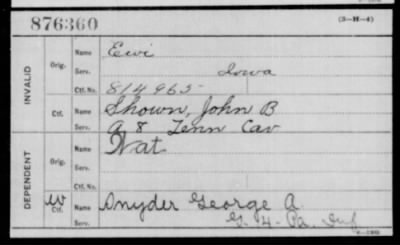 876360
(3-H-4)
INVALID
Orig.
Name
Serv. Iowa
Ctf. No. 814965
Ctf.
Name Shown, John B
Serv. A 8 Tenn Cav
DEPENDENT
Orig.
Name Nat
Serv.
Ctf. No.
W Ctf.
Name Snyder George A.
Serv. G. 4. Pa. Inf